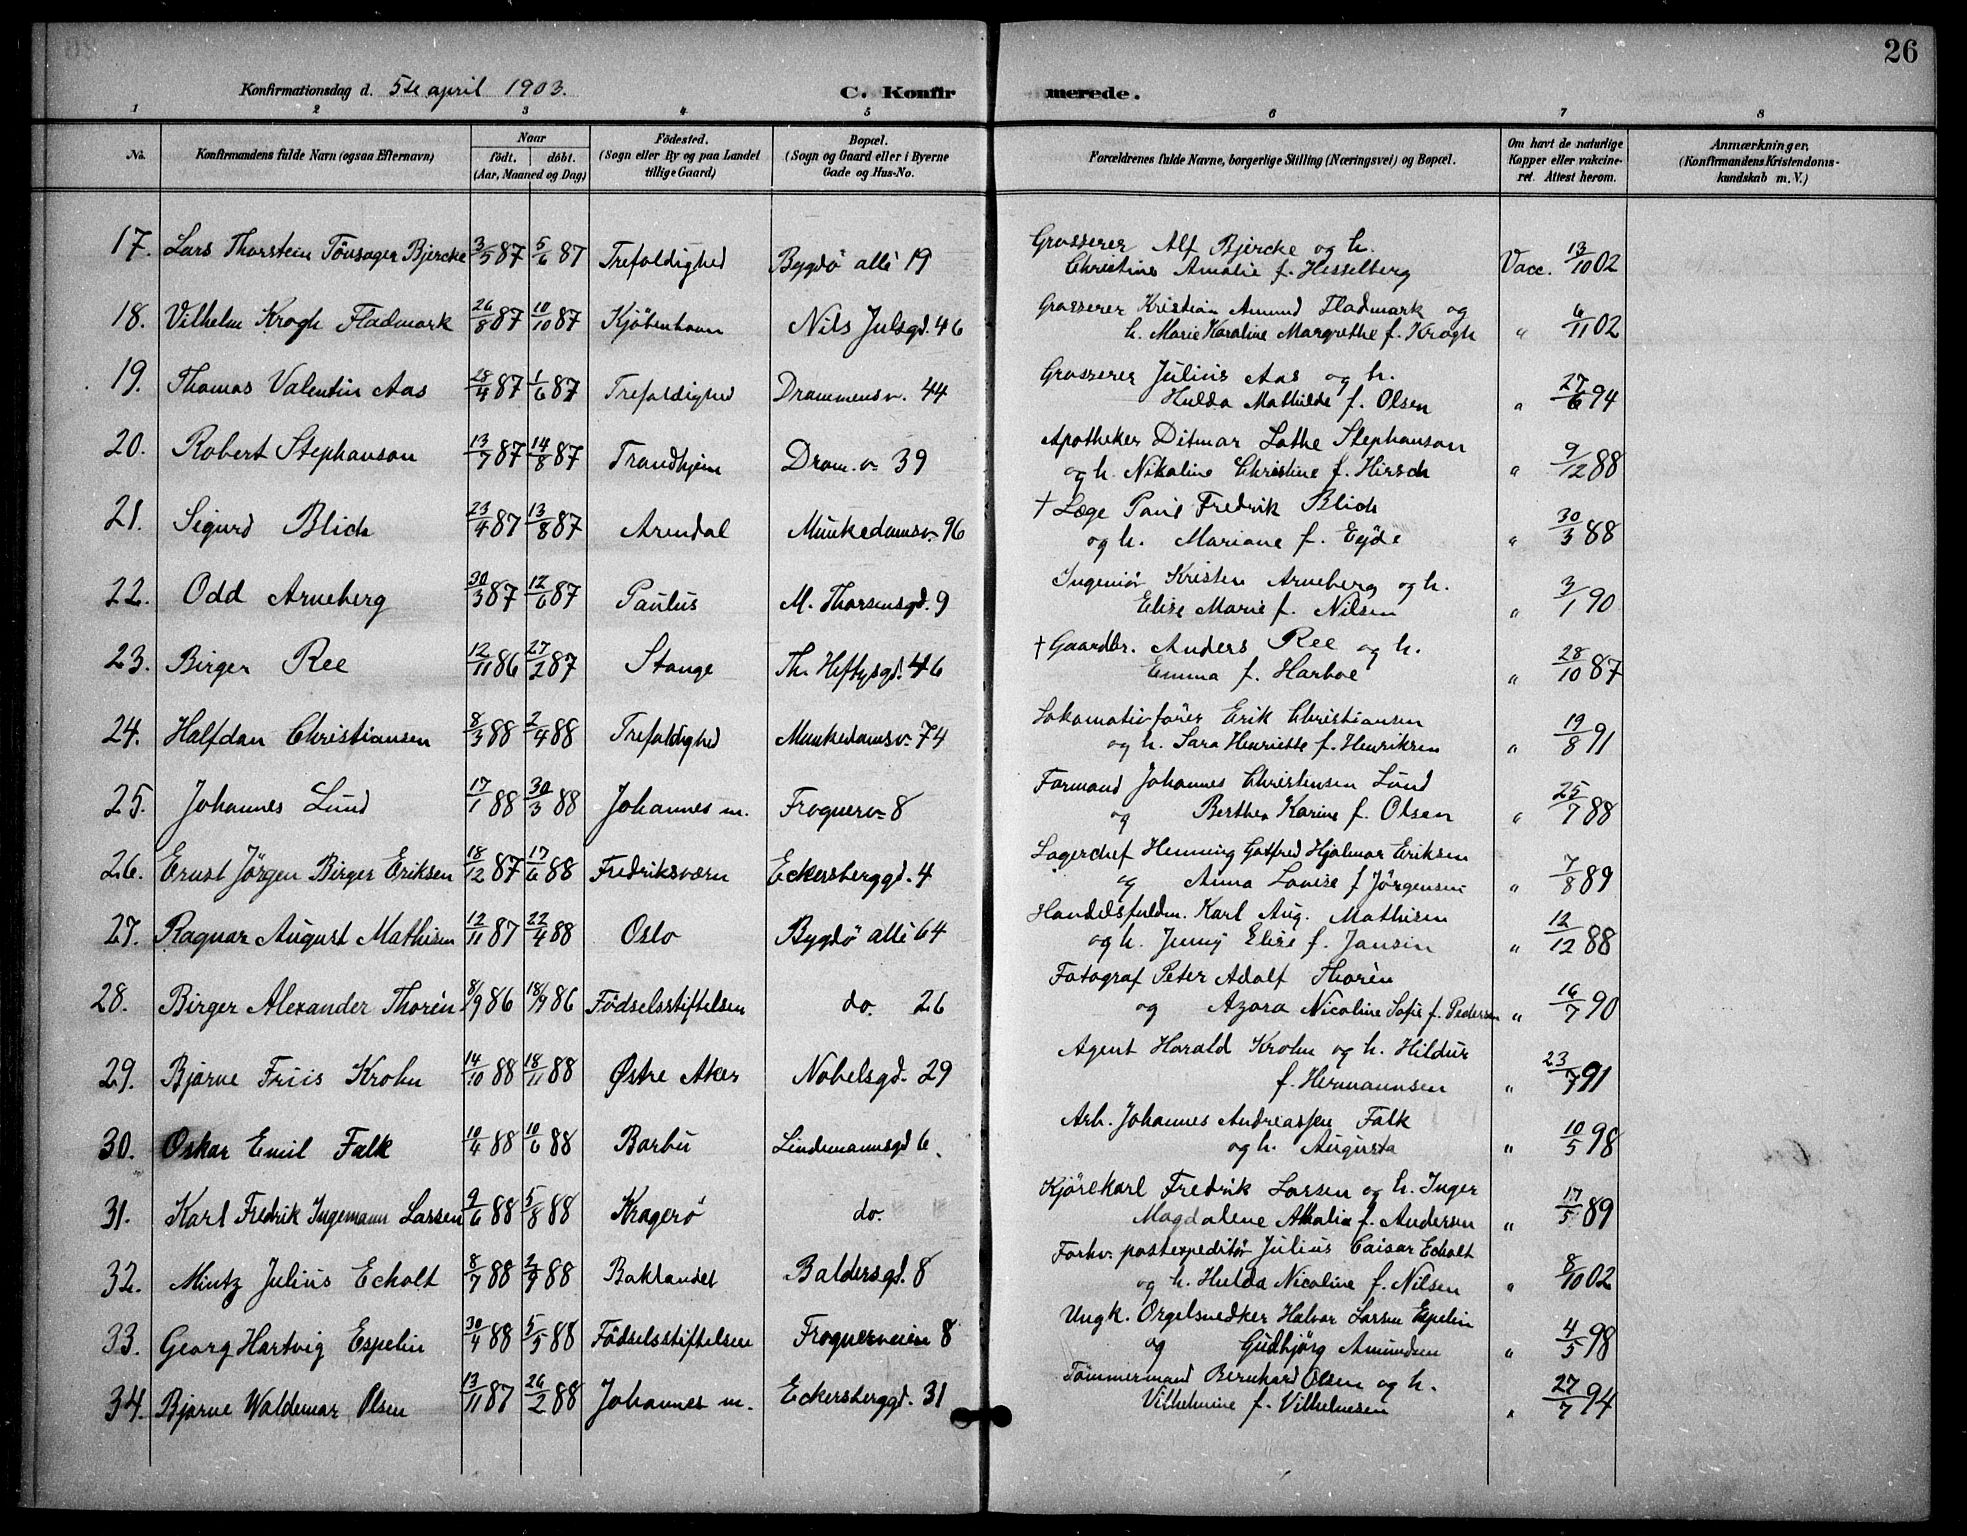 26
Konfirmationsdag d. 5te april 1903.
C. Konfirmerede.
1 2 3 4 5 6 7 8
No. Konfirmandens fulde Navn (ogsaa Efternavn) Naar født. døbt. (Aar, Maaned og Dag) Fødested. (Sogn eller By og paa Landet tillige Gaard) Bopæl. (Sogn og Gaard eller i Byerne Gade og Hus-No. Forældrenes fulde Navne, borgerlige Stilling (Næringsvei) og Bopæl. Om havt de naturlige Kopper eller vakcineret. Attest herom. Anmærkninger. (Konfirmandens Kristendomskundskab m. V.)
17. Lars Thorstein Tönsager Bjercke 3/5 87 5/6 87 Trefoldighed Bygdö allé 19 Grosserer Alf Bjercke og h.
Christine Amalie f. Hesselberg Vacc. 13/10 02
18. Vilhelm Krogh Fladmark 26/8 87 10/10 87 Kjöbenhavn Nils Julsgd. 46 Grosserer Kristian Amund Fladmark og
h. Marie Karoline Margrethe f. Krogh " 6/11 02
19. Thomas Valentin Aas 28/4 87 1/6 87 Trefoldighed Drammensv. 44 Grosserer Julius Aas og h.
Hulda Mathilde f. Olsen " 27/6 94
20. Robert Stephanson 13/7 87 14/8 87 Trondhjem Dram. v. 39 Apotheker Ditmar Lothe Stephanson
og h. Nikoline Christine f. Hirsch " 9/12 88
21. Sigurd Blich 23/4 87 13/8 87 Arendal Munkedamsv. 96 † Læge Paul Fredrik Blich
og h. Mariane f. Eyde " 30/3 88
22. Odd Arneberg 30/3 87 12/6 87 Paulus M. Thorsensgd. 9 Ingeniör Kristen Arneberg og h.
Elise Marie f. Nilsen " 3/1 90
23. Birger Ree 12/11 86 27/2 87 Stange Th. Heftysgd. 46 † Gaardbr. Anders Ree og h.
Emma f. Harboe " 28/10 87
24. Halfdan Christiansen 8/3 88 2/4 88 Trefoldighed Munkedamsv. 74 Lokomotivförer Erik Christiansen
og h. Sara Henriette f. Henriksen " 19/8 91
25. Johannes Lund 17/1 88 30/3 88 Johannes m. Frognerv. 8 Formand Johannes Christensen Lund
og Berthea Karine f. Olsen " 25/7 88
26. Ernst Jörgen Birger Eriksen 18/12 87 17/6 88 Fredriksværn Eckersberggd. 4 Lagerchef Henning Gotfred Hjalmar Eriksen
og Anna Lovise f. Jörgensen " 7/8 89
27. Ragnar August Mathisen 12/11 87 22/4 88 Oslo Bygdö allé 64 Handelsfuldm. Karl Aug. Mathisen
og h. Jenny Elise f. Jansen " 12/12 88
28. Birger Alexander Thorén 8/9 86 18/9 86 Födselsstiftelsen do. 26 Fotograf Peter Adolf Thorèn
og Azora Nicoline Sofie f. Pedersen " 16/7 90
29. Bjarne Friis Krohn 14/10 88 18/11 88 Østre Aker Nobelsgd. 29 Agent Harald Krohn og h. Hildur
f. Hermannsen " 23/7 91
30. Oskar Emil Falk 10/4 88 10/6 88 Barbu Lindemannsgd 6. Arb. Johannes Andreassen Falk
og h. Augusta " 10/5 98
31. Karl Fredrik Ingemann Larsen 9/6 88 5/8 88 Kragerö do. Kjörekarl Fredrik Larsen og h. Inger
Magdalene Amalie f. Andersen " 17/5 89
32. Mintz Julius Echolt 8/7 88 2/9 88 Baklandet Baldersgd. 8 Forhv. postexpeditör Julius Caisar Echolt
og h. Hulda Nicoline f. Nilsen " 8/10 02
33. Georg Hartvig Espelin 30/4 88 5/5 88 Födselsstiftelsen Frognerveien 8 Ungk. Orgelsnedker Halvor Larsen Espelin
og Gudbjörg Amundsen " 4/5 98
34. Bjarne Waldemar Olsen 13/11 87 26/2 88 Johannes m. Eckersberggd. 31 Tömmermand Bernhard Olsen og h.
Vilhelmine f. Vilhelmsen " 27/7 94